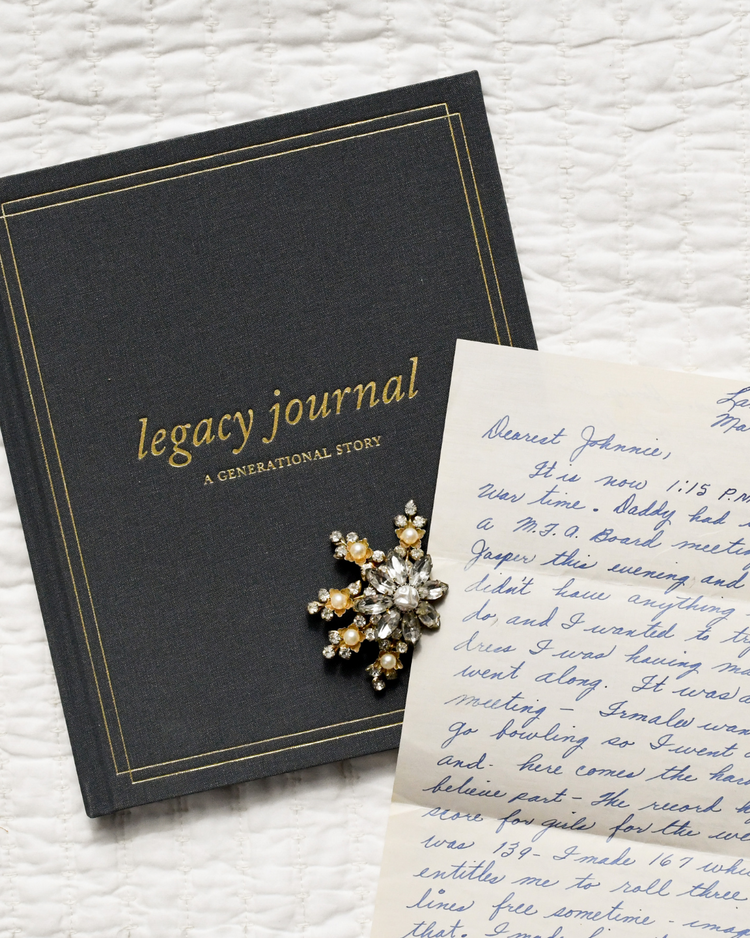 legacy journal
A GENERATIONAL STORY
Dearest Johnnie,
It is now 1:15 P.M
War time. Daddy had
a M.F.A. Board meetin
Jasper this evening and
didn't have anything
do, and I wanted to try
dress I was having ma
went along. It was a
meeting - Irmalee wan
go bowling so I went
and - here comes the har
believe part - The record h
score for girls for the we
was 139 - I made 167 whi
entitles me to roll three
lines free sometime - imag
that.